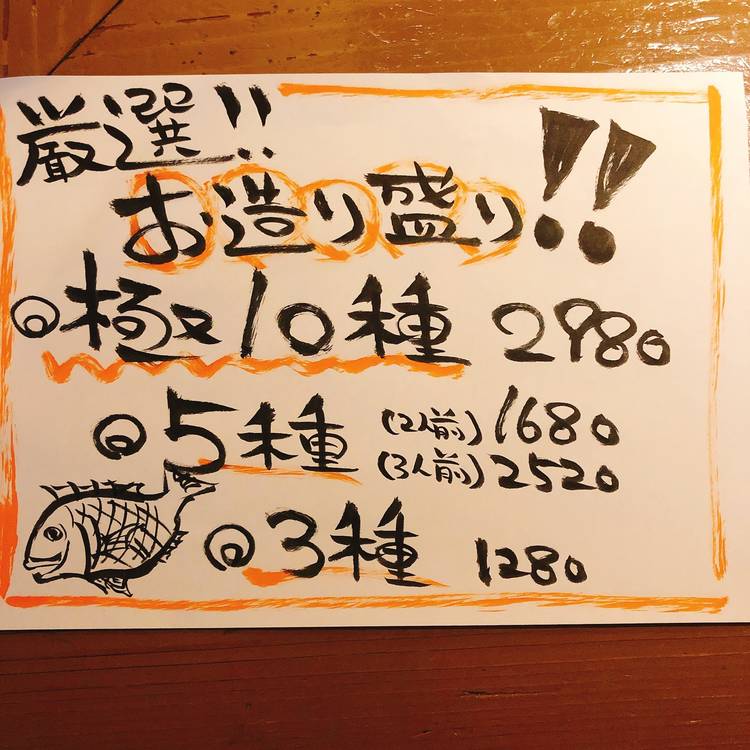 厳選!!
お造り盛り!!
◎極10種 2980
◎5種 (2人前) 1680
(3人前) 2520
◎3種 1280